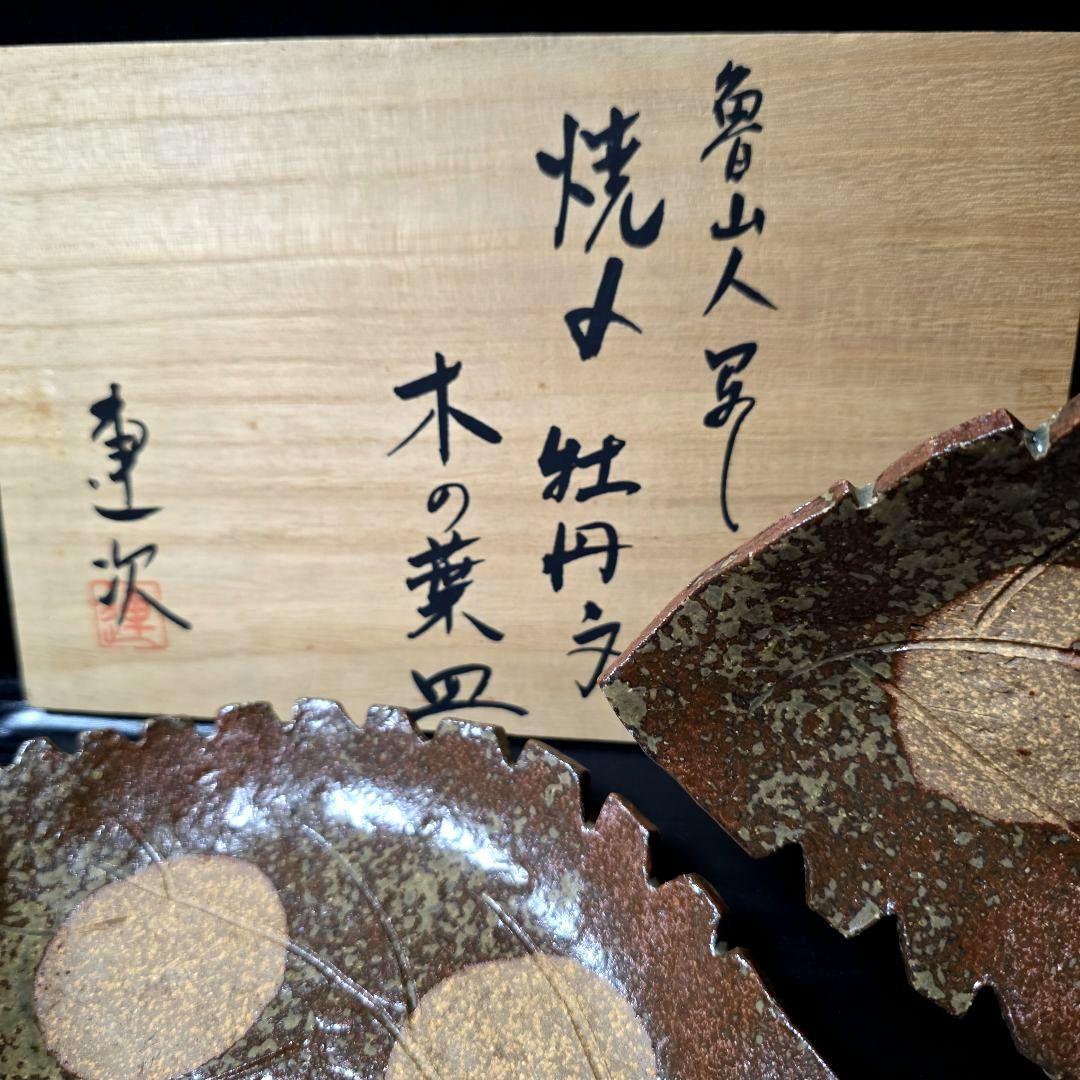 魯山人写し
焼〆 牡丹文
木の葉皿
連次